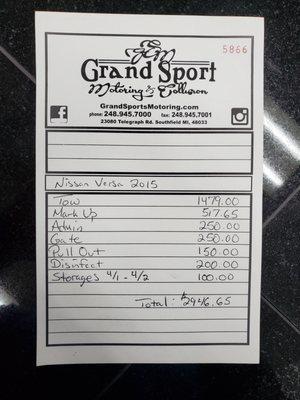 5866
GSM
Grand Sport
Motoring & Collision
GrandSportsMotoring.com
phone: 248.945.7000 fax: 248.945.7001
23080 Telegraph Rd. Southfield MI, 48033
Nissan Versa 2015
Tow 1479.00
Mark Up 517.65
Admin 250.00
Gate 250.00
Pull Out 150.00
Disinfect 200.00
Storages 4/1 - 4/2 100.00
Total: $2946.65